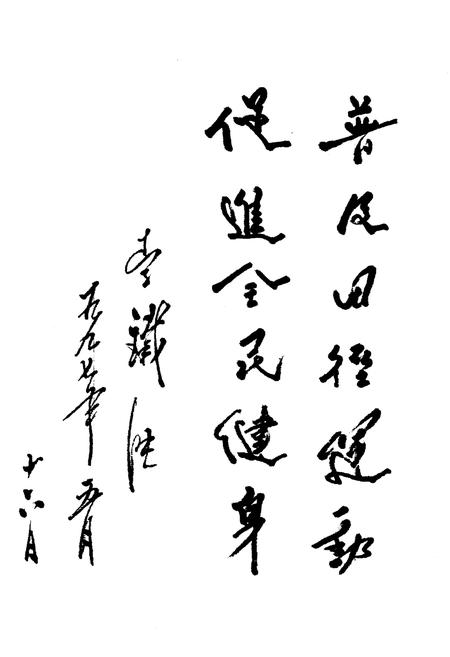 普及田徑運動
促進全民健身
李鐵映
一九九七年五月
十六日